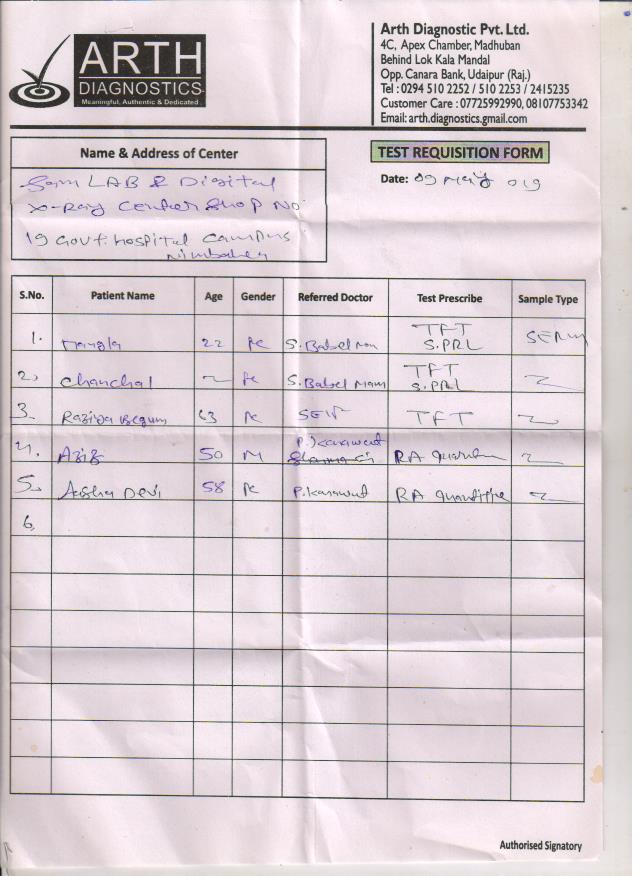 ARTH
DIAGNOSTICS
Meaningful, Authentic & Dedicated
Arth Diagnostic Pvt. Ltd.
4C, Apex Chamber, Madhuban
Behind Lok Kala Mandal
Opp. Canara Bank, Udaipur (Raj.)
Tel : 0294 510 2252 / 510 2253 / 2415235
Customer Care : 07725992990, 08107753342
Email: arth.diagnostics.gmail.com
Name & Address of Center
LAB & Digital
X-Ray Center Shop No
19 Govt. hospital campus
TEST REQUISITION FORM
Date: 09 May 019
S.No. Patient Name Age Gender Referred Doctor Test Prescribe Sample Type
1. 22 S. Babel TFT S.PRL SERUM
2. Chanchal S. Babel Mam TFT S.PRL
3. Raziya Begum 63 SELF TFT
4. Aziz 50 M P. Karawut RA
5. Devi 58 P. Karawut RA
6.
Authorised Signatory